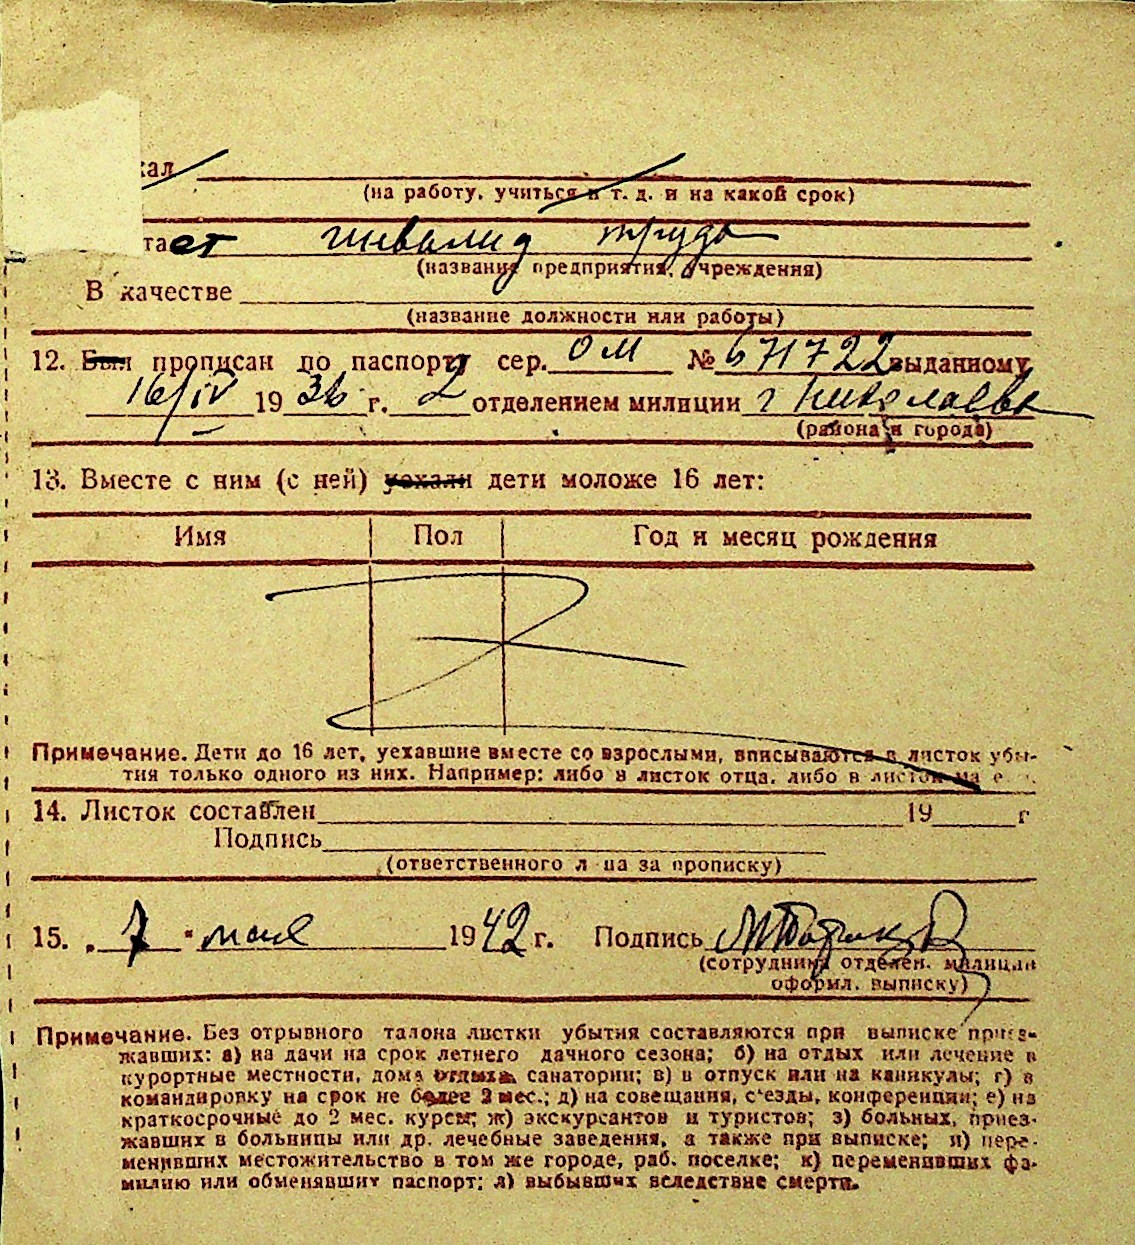 кал
(на работу, учиться и т. д. и на какой срок)
тает инвалид труда
(название предприятия, учреждения)
В качестве
(название должности или работы)
12. Был прописан по паспорту сер. ОМ № 671722 выданному
16/IV 1936 г. 2 отделением милиции г Николаева
(района и города)
13. Вместе с ним (с ней) уехали дети моложе 16 лет:
Имя Пол Год и месяц рождения
Примечание. Дети до 16 лет, уехавшие вместе со взрослыми, вписываются в листок убы-
тия только одного из них. Например: либо в листок отца, либо в листок
14. Листок составлен 19 г
Подпись
(ответственного лица за прописку)
15. „ 7 " мая 1942 г. Подпись
(сотрудника отделен. милиции
оформл. выписку)
Примечание. Без отрывного талона листки убытия составляются при выписке приез-
жавших: а) на дачи на срок летнего дачного сезона; б) на отдых или лечение в
курортные местности, дома отдыха, санатории; в) в отпуск или на каникулы; г) в
командировку на срок не более 2 мес.; д) на совещания, с'езды, конференции; е) на
краткосрочные до 2 мес. курсы; ж) экскурсантов и туристов; з) больных, приез-
жавших в больницы или др. лечебные заведения, а также при выписке; и) пере-
менивших местожительство в том же городе, раб. поселке; к) переменивших фа-
милию или обменявшит паспорт; л) выбывших вследствие смерти.